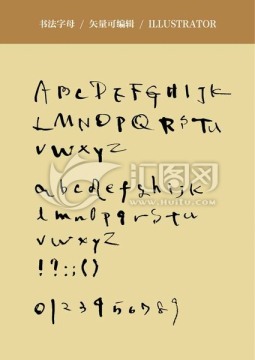 书法字母 / 矢量可编辑 / ILLUSTRATOR
ABCDEFGHIJK
LMNOPQRSTU
VWXYZ
abcdefghijk
lmnopqrstu
vwxyz
!?:;()
0123456789
汇图网
www.huitu.com